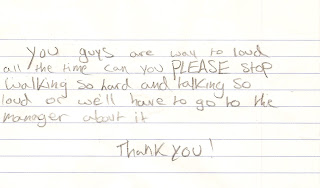 You guys are way to loud
all the time can you PLEASE stop
walking so hard and talking so
loud or we'll have to go to the
manager about it
Thank you!